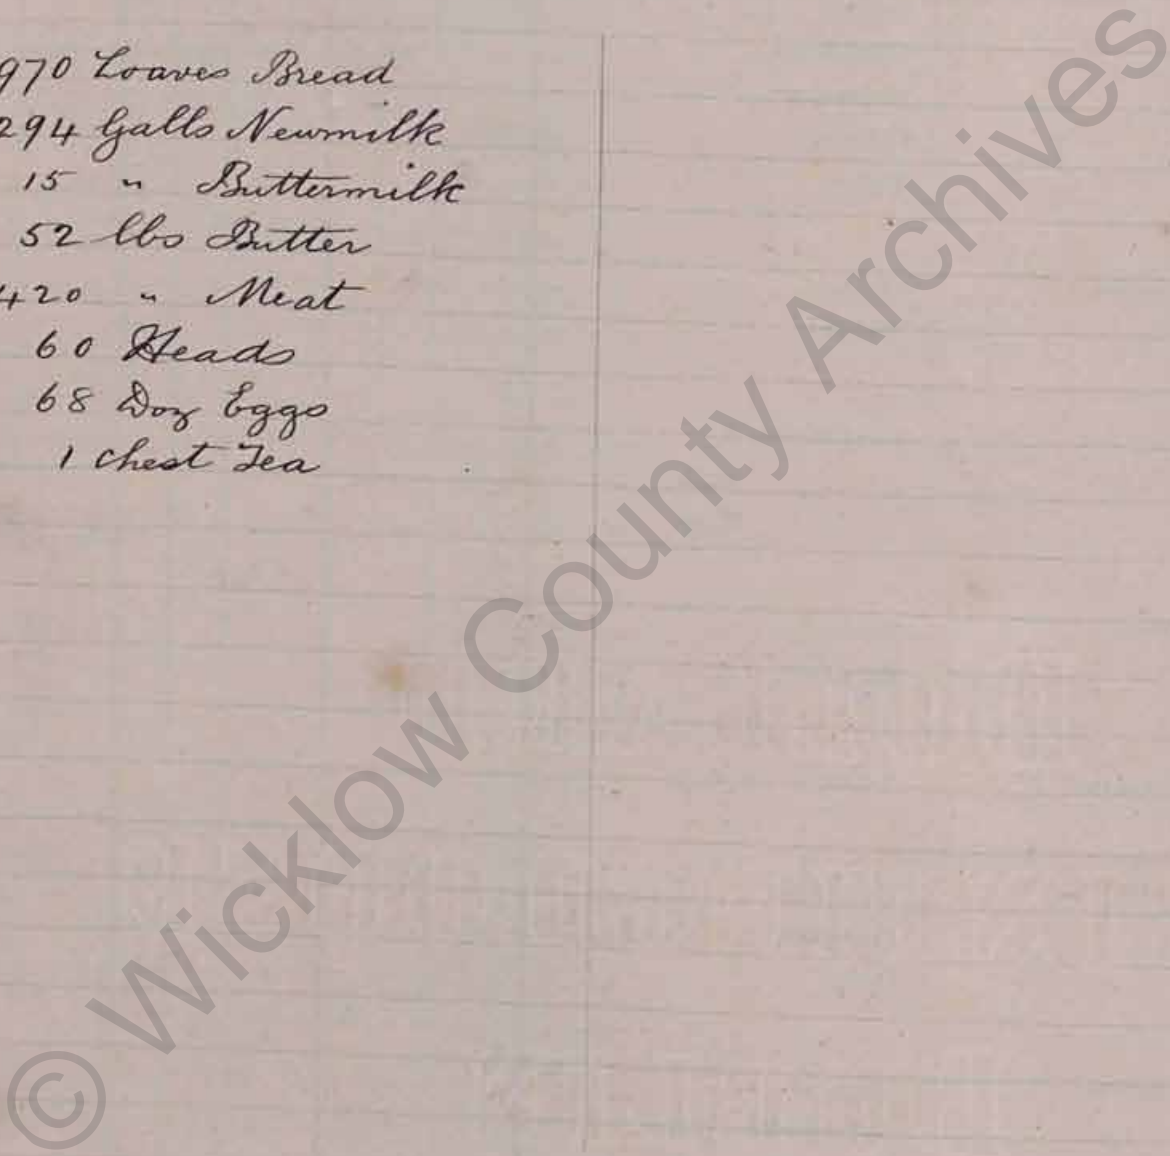 970 Loaves Bread
294 Galls Newmilk
15 " Buttermilk
52 lbs Butter
420 " Meat
60 Heads
68 Doz Eggs
1 chest Tea
© Wicklow County Archives